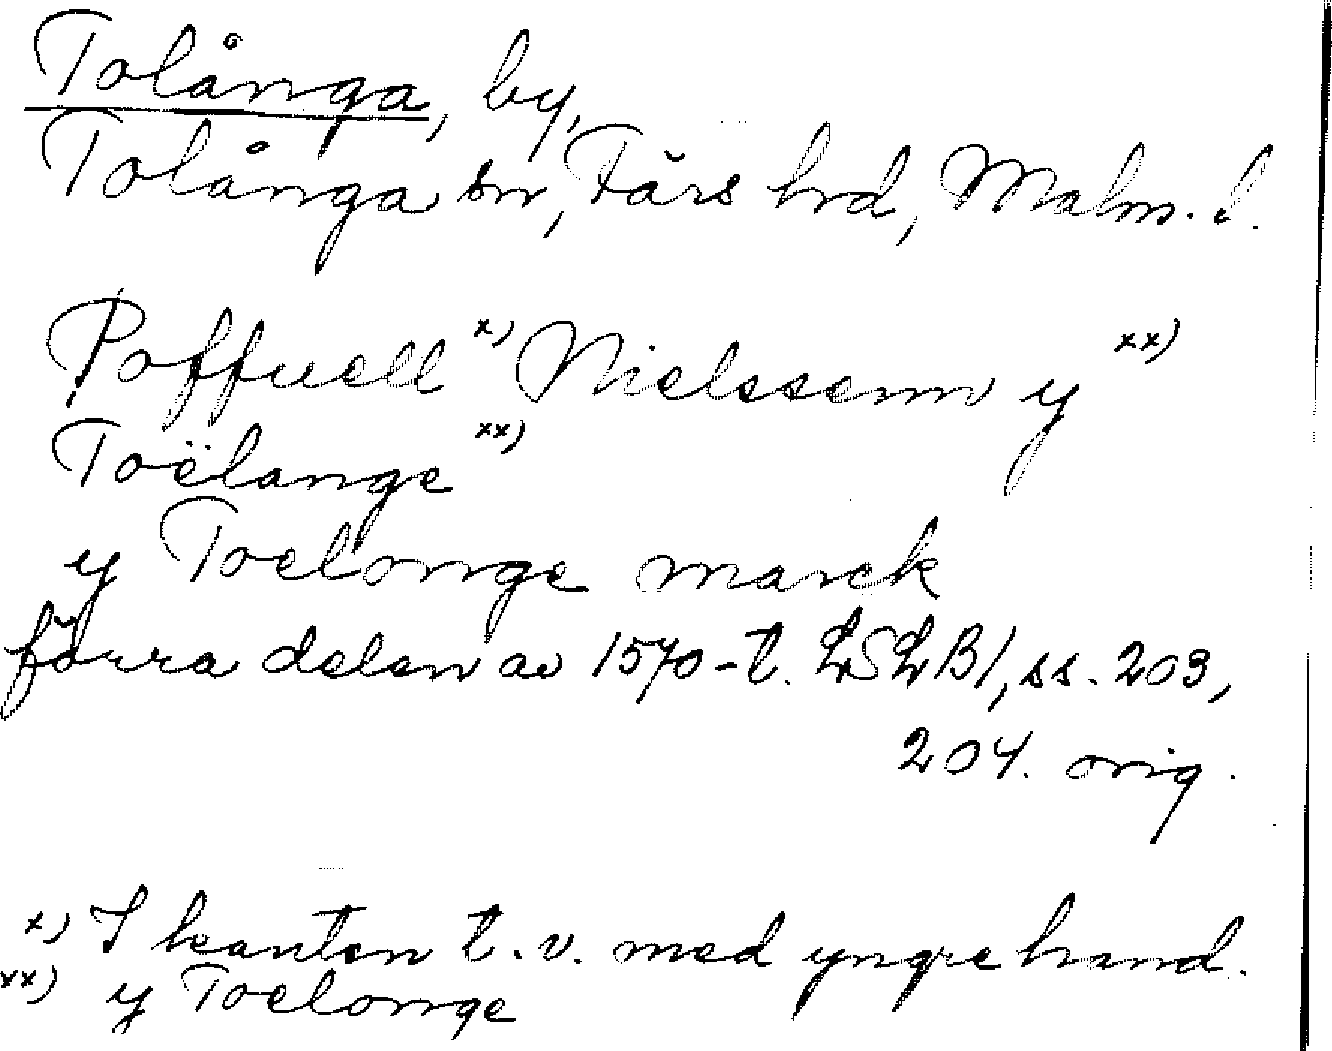 Tolånga, by,
Tolånga sn, Färs hrd, Malm. l.
Poffuell x) Nielssenn y xx)
Toëlange xx)
y Toelonge marck
förra delen av 1570-t. LSLB1, ss. 203,
204. orig.
x) I kanten t.v. med yngre hand.
xx) y Toelonge